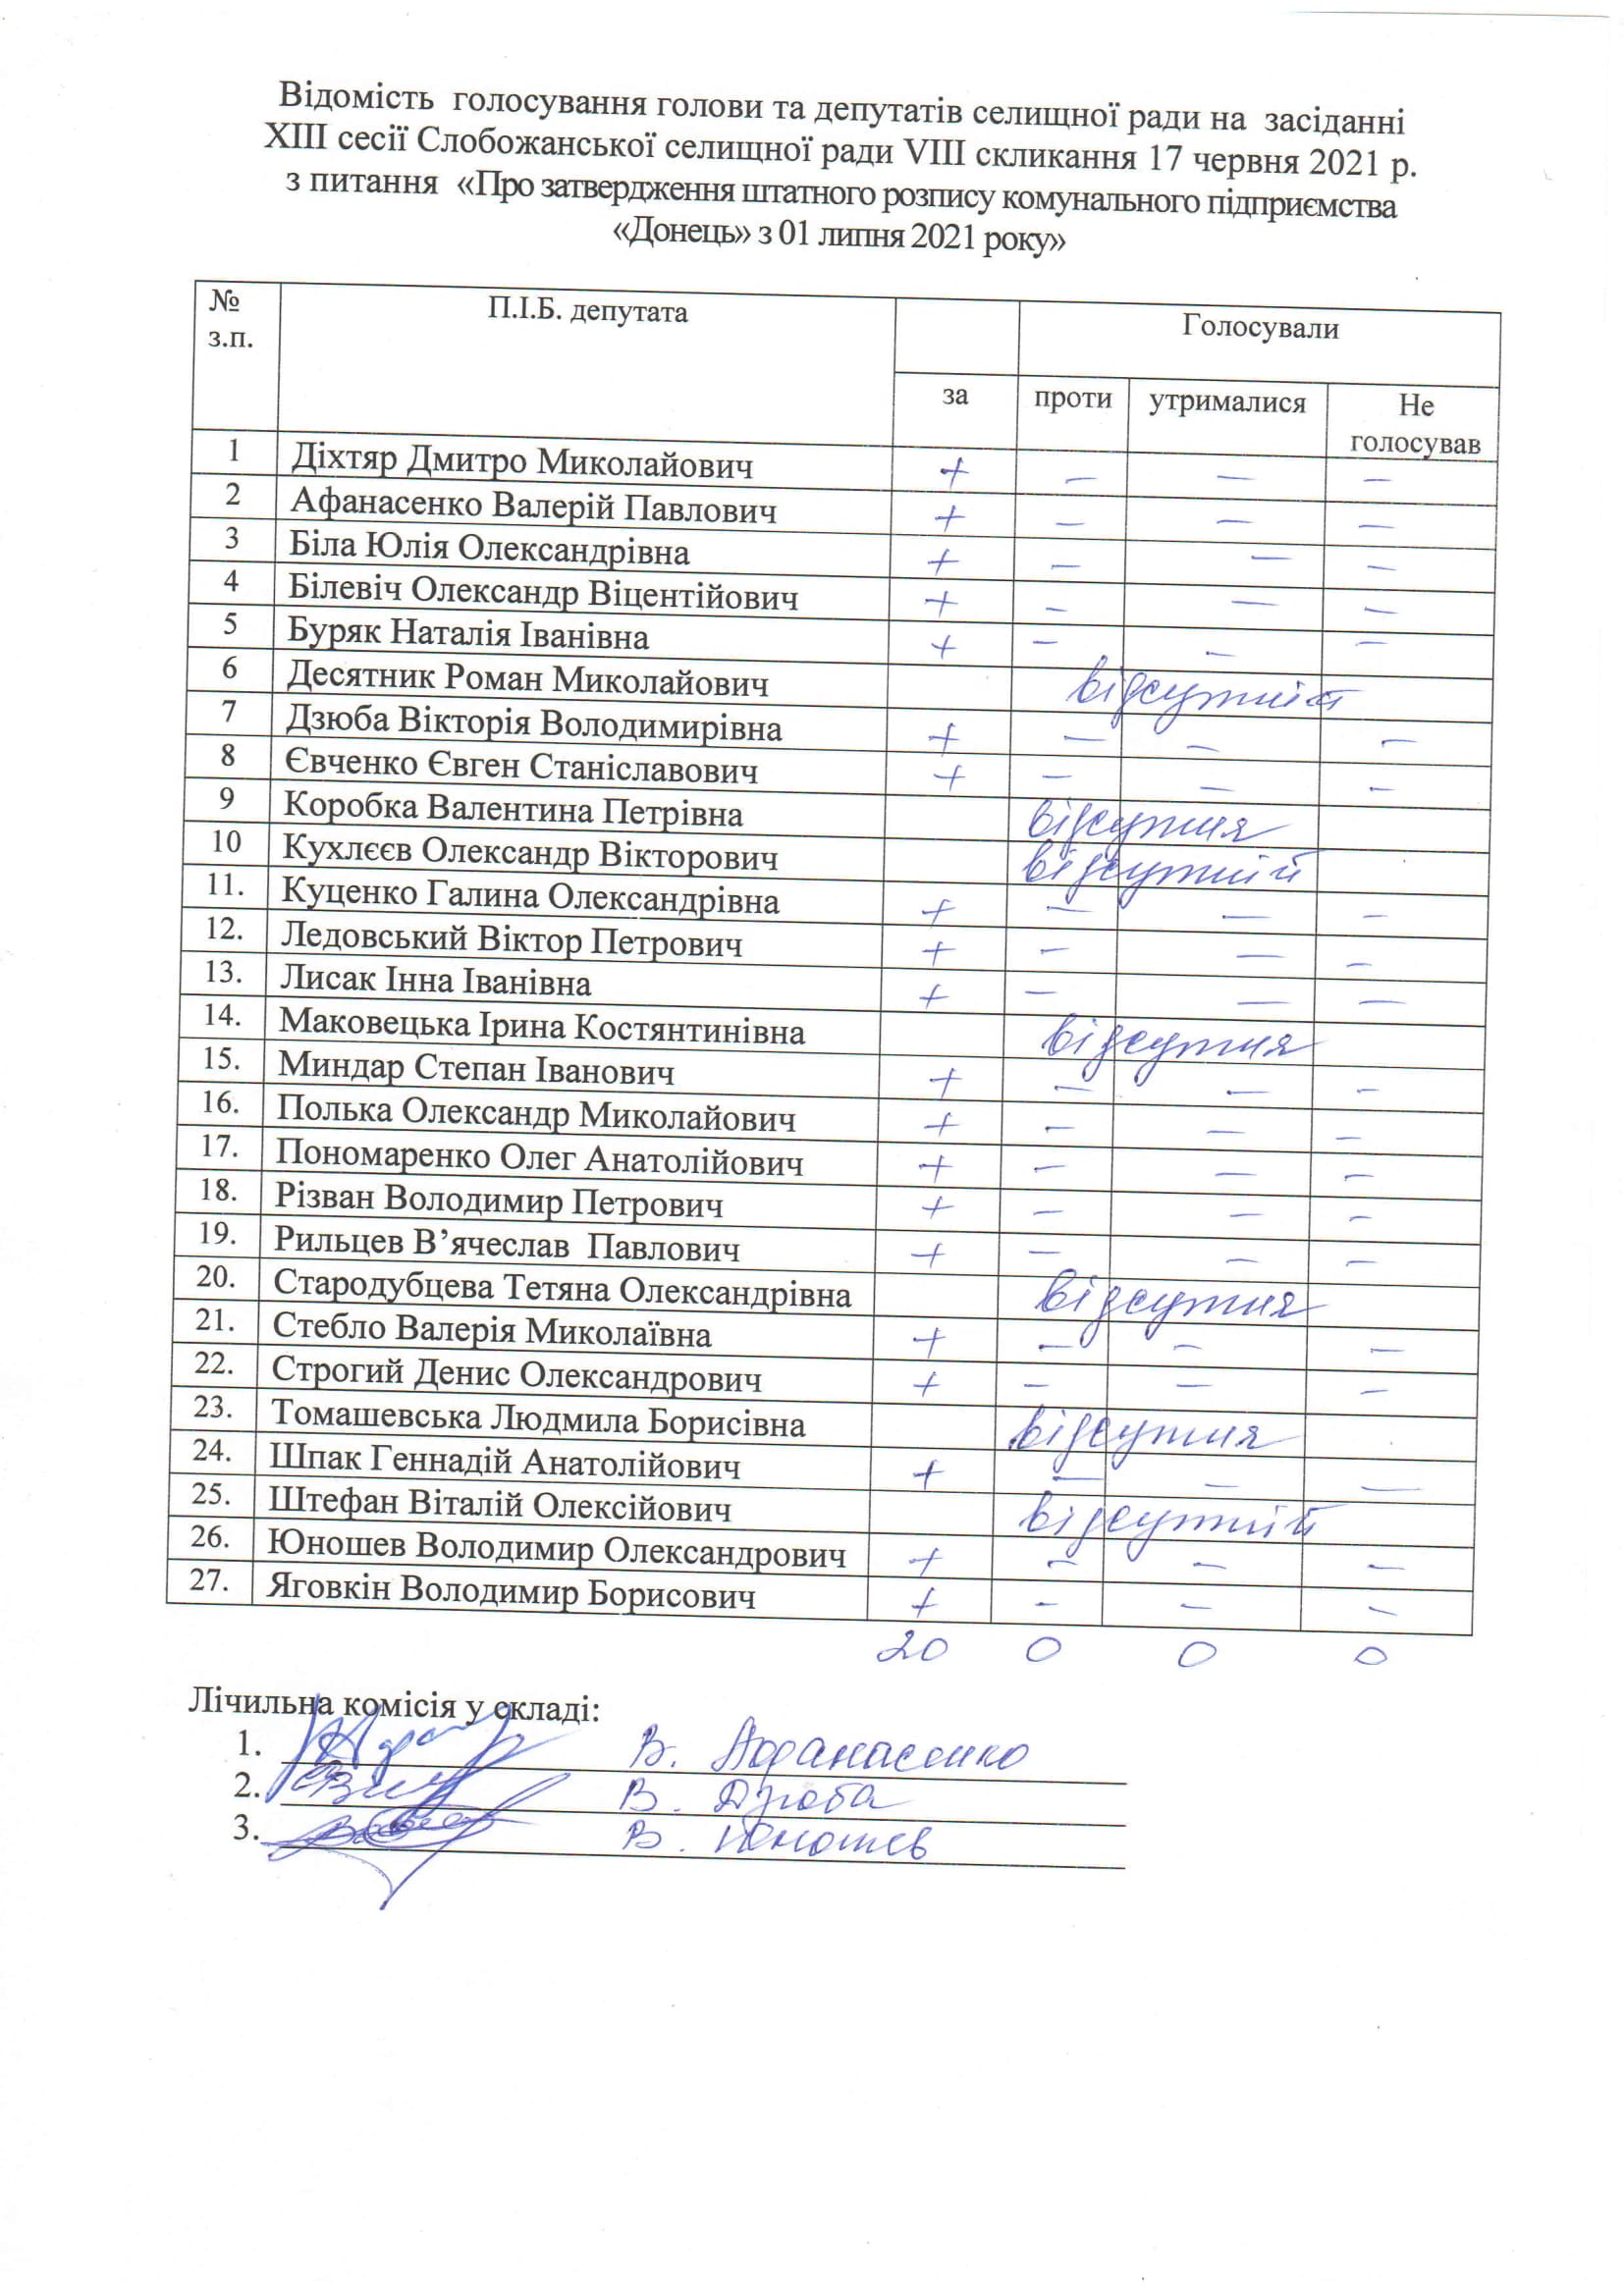 Відомість голосування голови та депутатів селищної ради на засіданні
ХІІІ сесії Слобожанської селищної ради VIII скликання 17 червня 2021 р.
з питання «Про затвердження штатного розпису комунального підприємства
«Донець» з 01 липня 2021 року»
№ з.п. П.І.Б. депутата Голосували
за проти утрималися Не голосував
1 Діхтяр Дмитро Миколайович + – – –
2 Афанасенко Валерій Павлович + – – –
3 Біла Юлія Олександрівна + – – –
4 Білевіч Олександр Віцентійович + – – –
5 Буряк Наталія Іванівна + – – –
6 Десятник Роман Миколайович відсутній
7 Дзюба Вікторія Володимирівна + – – –
8 Євченко Євген Станіславович + – – –
9 Коробка Валентина Петрівна відсутня
10 Кухлєєв Олександр Вікторович відсутній
11. Куценко Галина Олександрівна + – – –
12. Ледовський Віктор Петрович + – – –
13. Лисак Інна Іванівна + – – –
14. Маковецька Ірина Костянтинівна відсутня
15. Миндар Степан Іванович + – – –
16. Полька Олександр Миколайович + – – –
17. Пономаренко Олег Анатолійович + – – –
18. Різван Володимир Петрович + – – –
19. Рильцев В’ячеслав Павлович + – – –
20. Стародубцева Тетяна Олександрівна відсутня
21. Стебло Валерія Миколаївна + – – –
22. Строгий Денис Олександрович + – – –
23. Томашевська Людмила Борисівна відсутня
24. Шпак Геннадій Анатолійович + – – –
25. Штефан Віталій Олексійович відсутній
26. Юношев Володимир Олександрович + – – –
27. Яговкін Володимир Борисович + – – –
20 0 0 0
Лічильна комісія у складі:
1. В. Афанасенко
2. В. Дзюба
3. В. Юношев